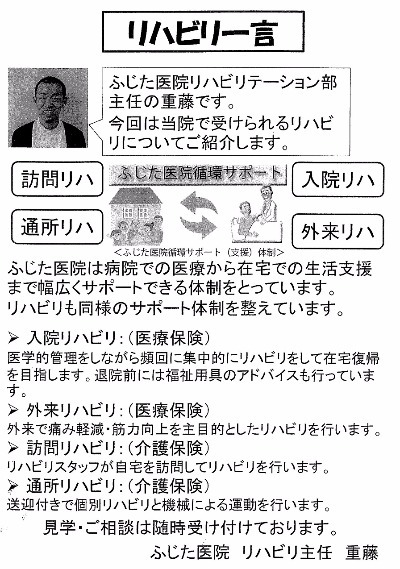 リハビリ一言
ふじた医院リハビリテーション部
主任の重藤です。
今回は当院で受けられるリハビ
リについてご紹介します。
訪問リハ
ふじた医院循環サポート
入院リハ
通所リハ
外来リハ
<ふじた医院循環サポート（支援）体制>
ふじた医院は病院での医療から在宅での生活支援
まで幅広くサポートできる体制をとっています。
リハビリも同様のサポート体制を整えています。
➢ 入院リハビリ：（医療保険）
医学的管理をしながら頻回に集中的にリハビリをして在宅復帰
を目指します。退院前には福祉用具のアドバイスも行っていま
す。
➢ 外来リハビリ：（医療保険）
外来で痛み軽減・筋力向上を主目的としたリハビリを行います。
➢ 訪問リハビリ：（介護保険）
リハビリスタッフが自宅を訪問してリハビリを行います。
➢ 通所リハビリ：（介護保険）
送迎付きで個別リハビリと機械による運動を行います。
見学・ご相談は随時受け付けております。
ふじた医院 リハビリ主任 重藤